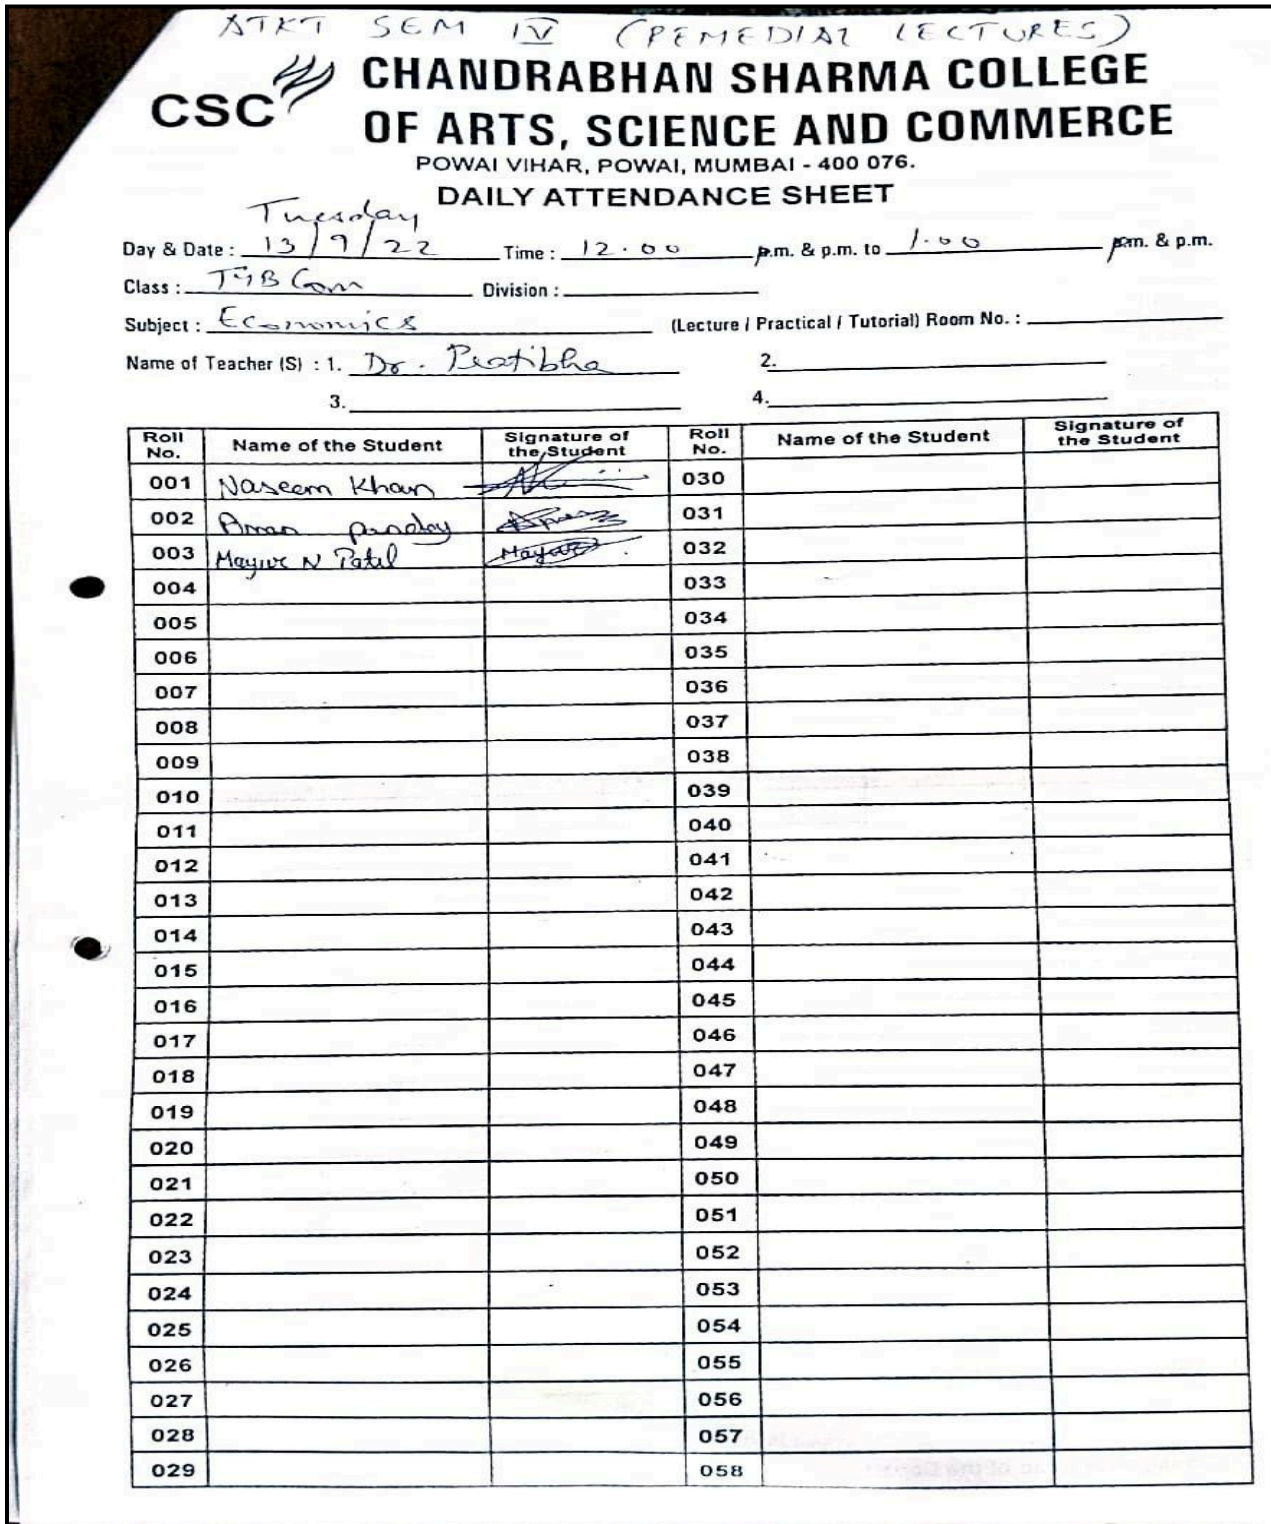 ATKT SEM IV (REMEDIAL LECTURES)
CSC
CHANDRABHAN SHARMA COLLEGE
OF ARTS, SCIENCE AND COMMERCE
POWAI VIHAR, POWAI, MUMBAI - 400 076.
DAILY ATTENDANCE SHEET
Tuesday
Day & Date : 13/9/22 Time : 12.00 p.m. & p.m. to 1.00 p.m. & p.m.
Class : TYBCom Division :
Subject : Economics (Lecture / Practical / Tutorial) Room No. :
Name of Teacher (S) : 1. Dr. Pratibha 2.
3. 4.
Roll No. Name of the Student Signature of the Student Roll No. Name of the Student Signature of the Student
001 Naseem Khan 030
002 Aman panday 031
003 Mayur N Patil Mayur 032
004 033
005 034
006 035
007 036
008 037
009 038
010 039
011 040
012 041
013 042
014 043
015 044
016 045
017 046
018 047
019 048
020 049
021 050
022 051
023 052
024 053
025 054
026 055
027 056
028 057
029 058